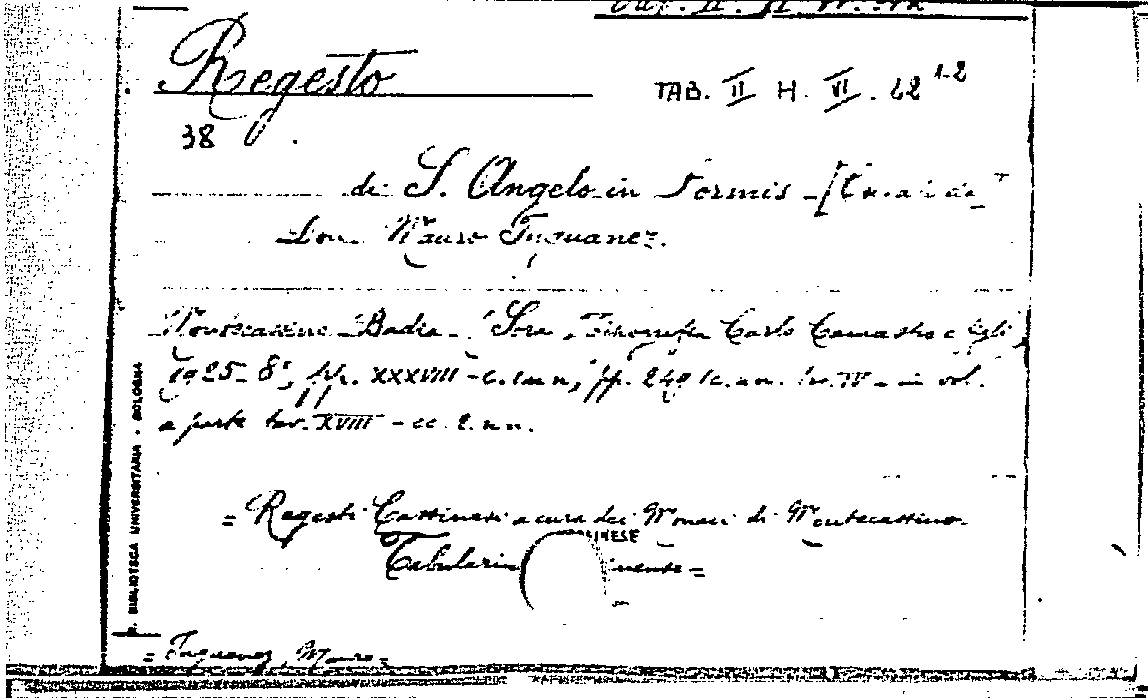 Regesto
TAB. II H. VI. 62 1-2
38
di S. Angelo in Formis - [Cura di
Don Mauro Inguanez.
Montecassino Badia - Sora, Tipografia Carlo Camastro e figli,
1925 - 8°, pp. XXXVIII - c. 1 n n, pp. 249 1 c. n n. tav. IV - in vol.
a parte tav. XVIII - cc. 2. n n.
= Regesti Cassinesi a cura dei Monaci di Montecassino
Tabularium =
= Inguanez, Mauro =
BIBLIOTECA UNIVERSITARIA - BOLOGNA